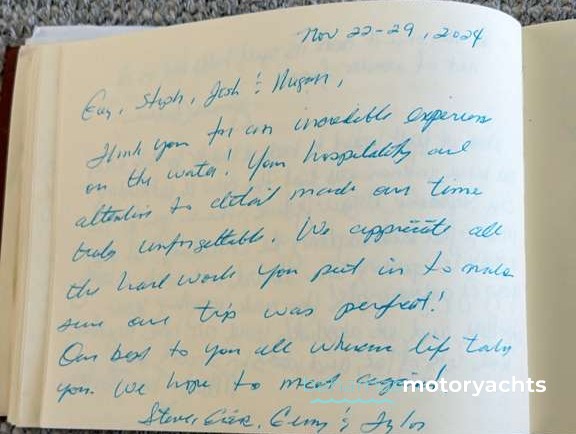 Nov 22-29, 2024
Steph, Josh & Megan,
Thank you for an incredible experience
on the water! Your hospitality and
attention to detail made our time
truly unforgettable. We appreciate all
the hard work you put in to make
sure our trip was perfect!
Our best to you all wherever life takes
you. We hope to meet again!
motoryachts
Steve, &